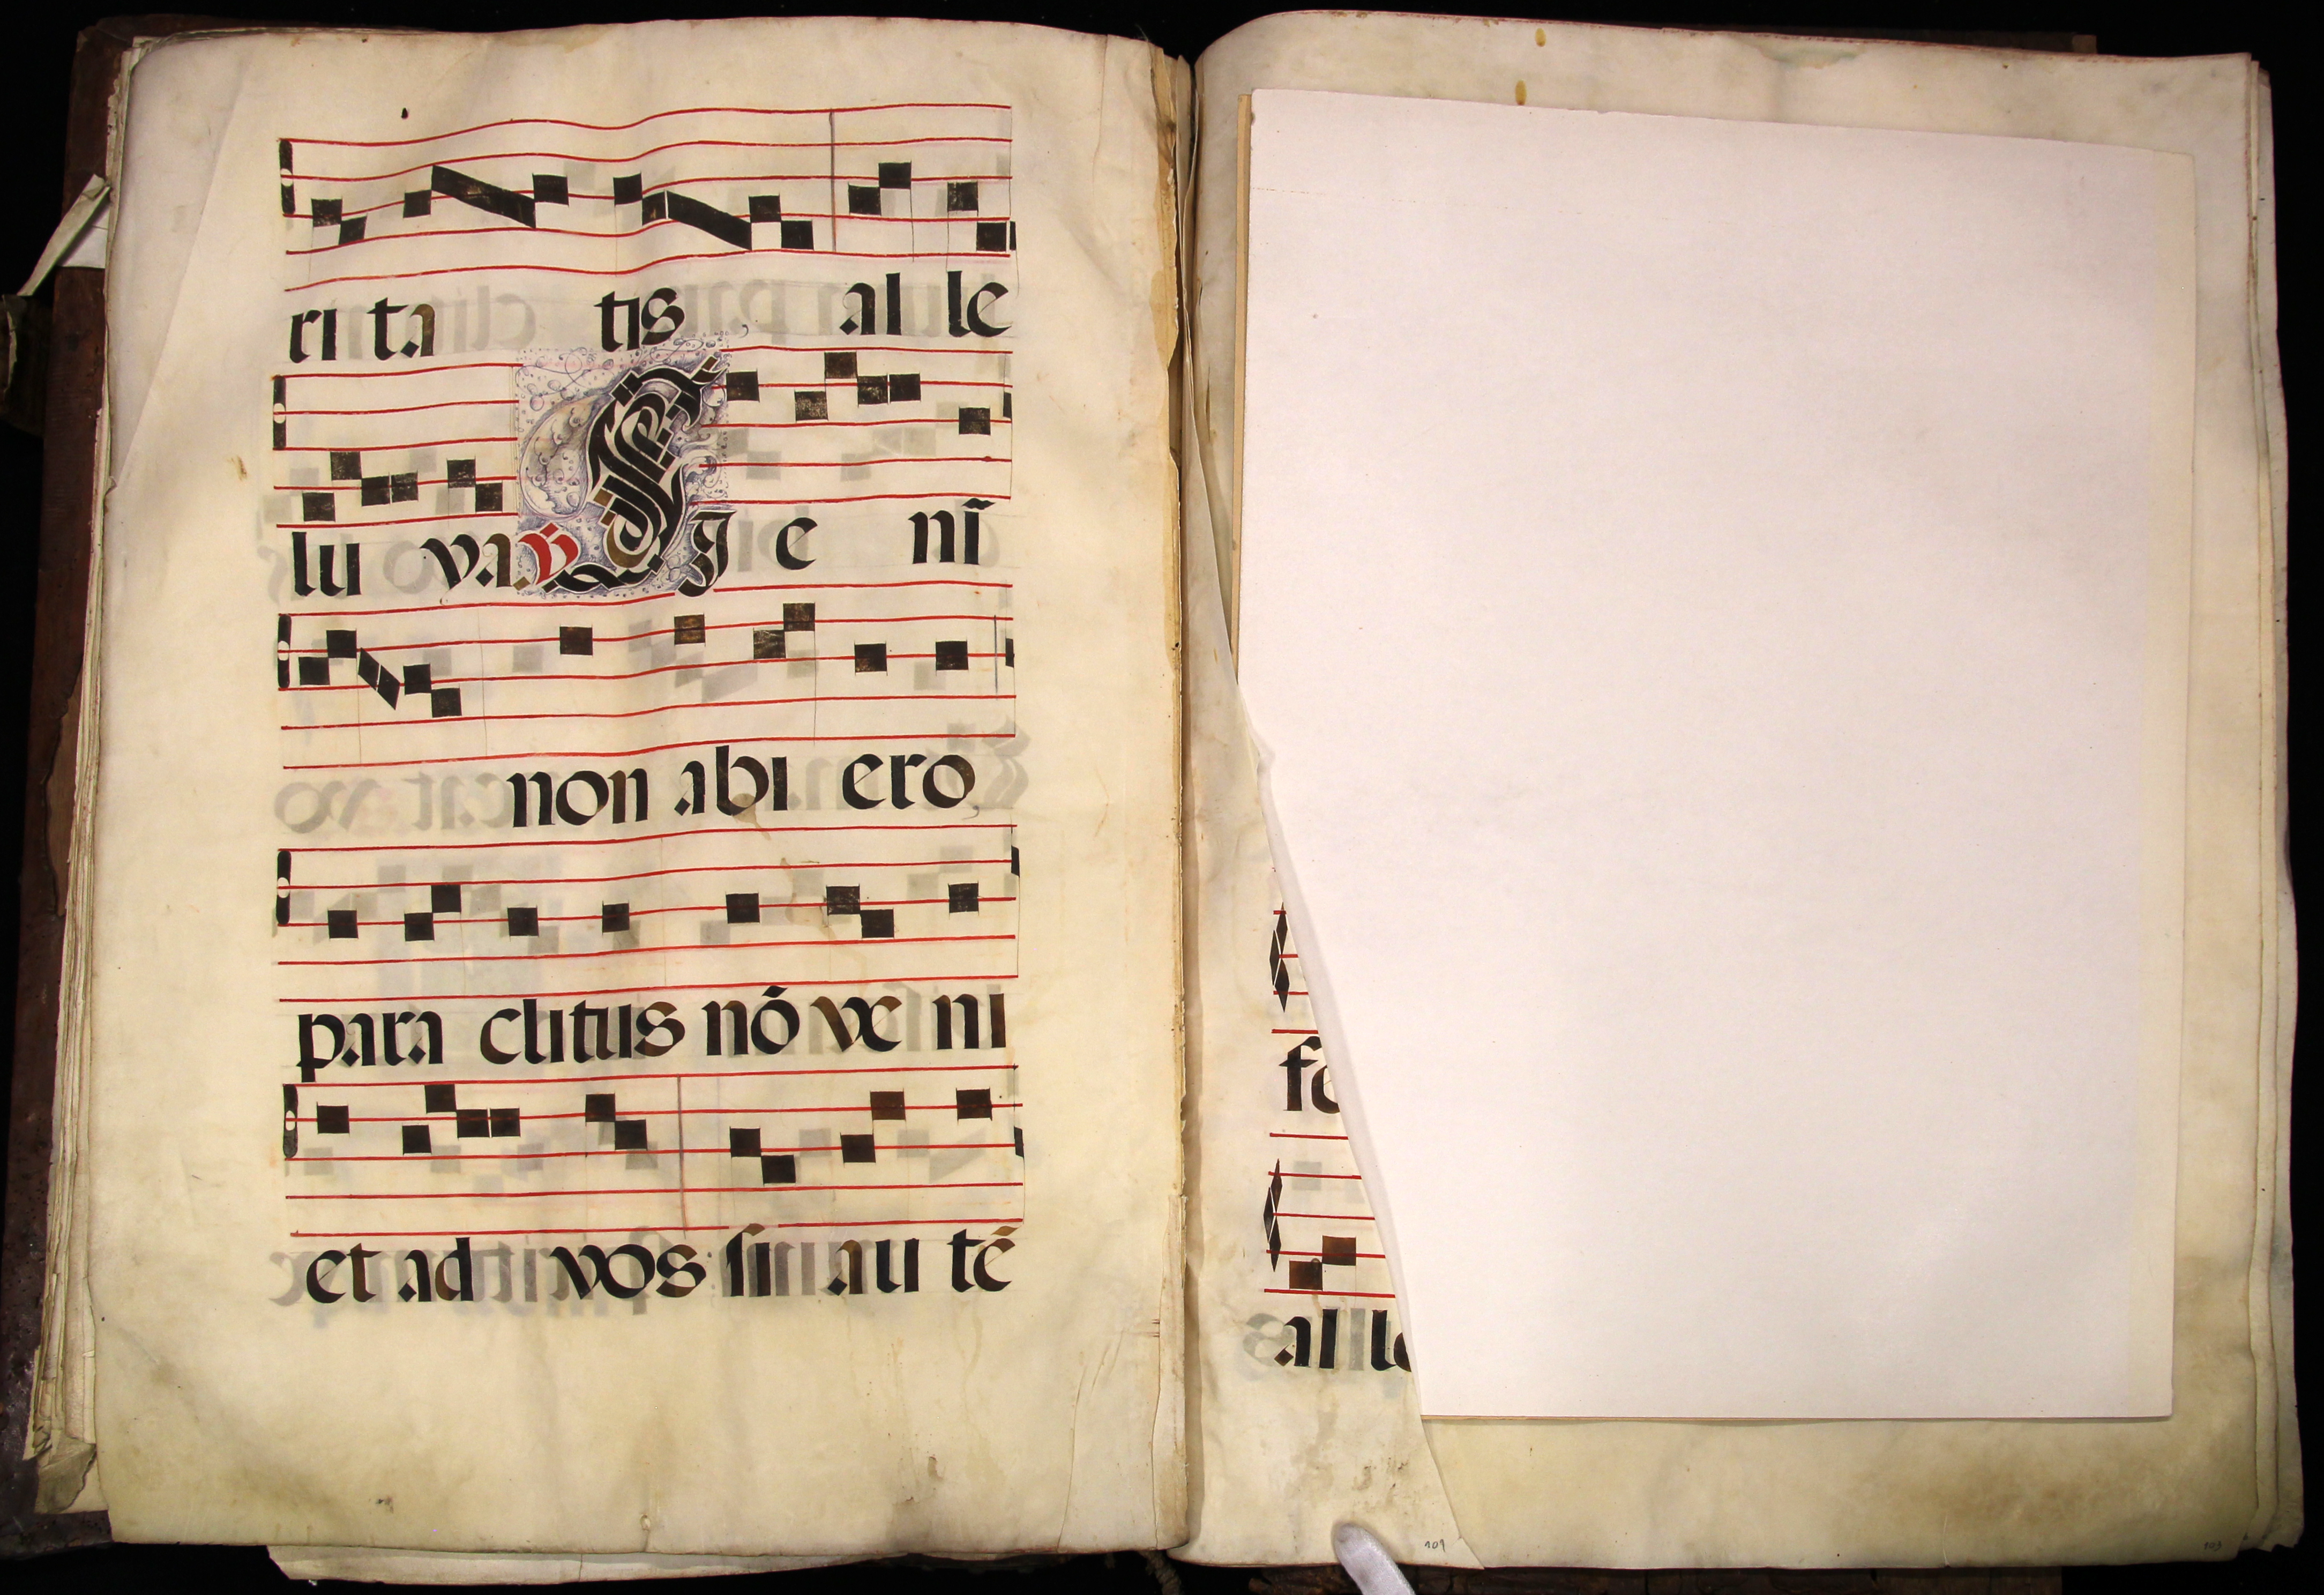 ri ta tis al le
lu ya. ℣ E g e nĩ
non abi ero
para clitus nõ ve ni
et ad vos sin au tẽ
fe
al le
101
103